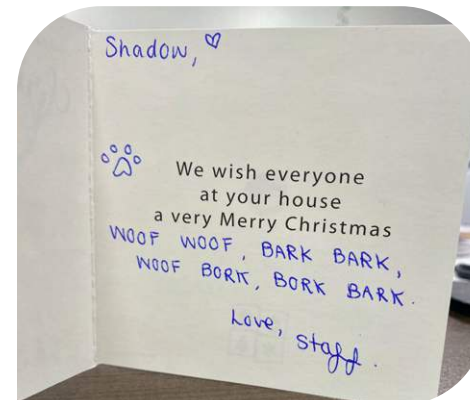 Shadow,
We wish everyone
at your house
a very Merry Christmas
WOOF WOOF, BARK BARK,
WOOF BORK, BORK BARK.
Love, staff.